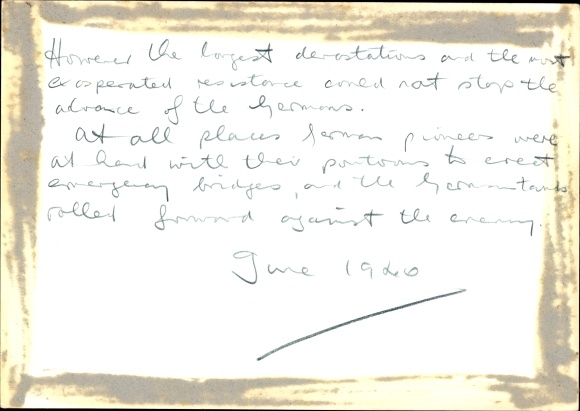 However the largest devastations and the most
exasperated resistance could not stop the
advance of the Germans.
At all places German pioneers were
at hand with their pontoons to erect
emergency bridges, and the German tanks
rolled forward against the enemy.
June 1940